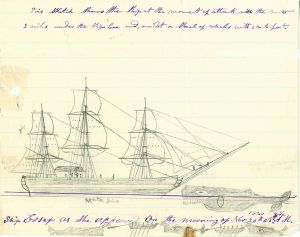 This Sketch shows the Ship at the moment of attack with the
2 miles under the Ship's lee and, amidst a Shoal of whales with
Ship Essex as she appeared On the morning of Nov 20th